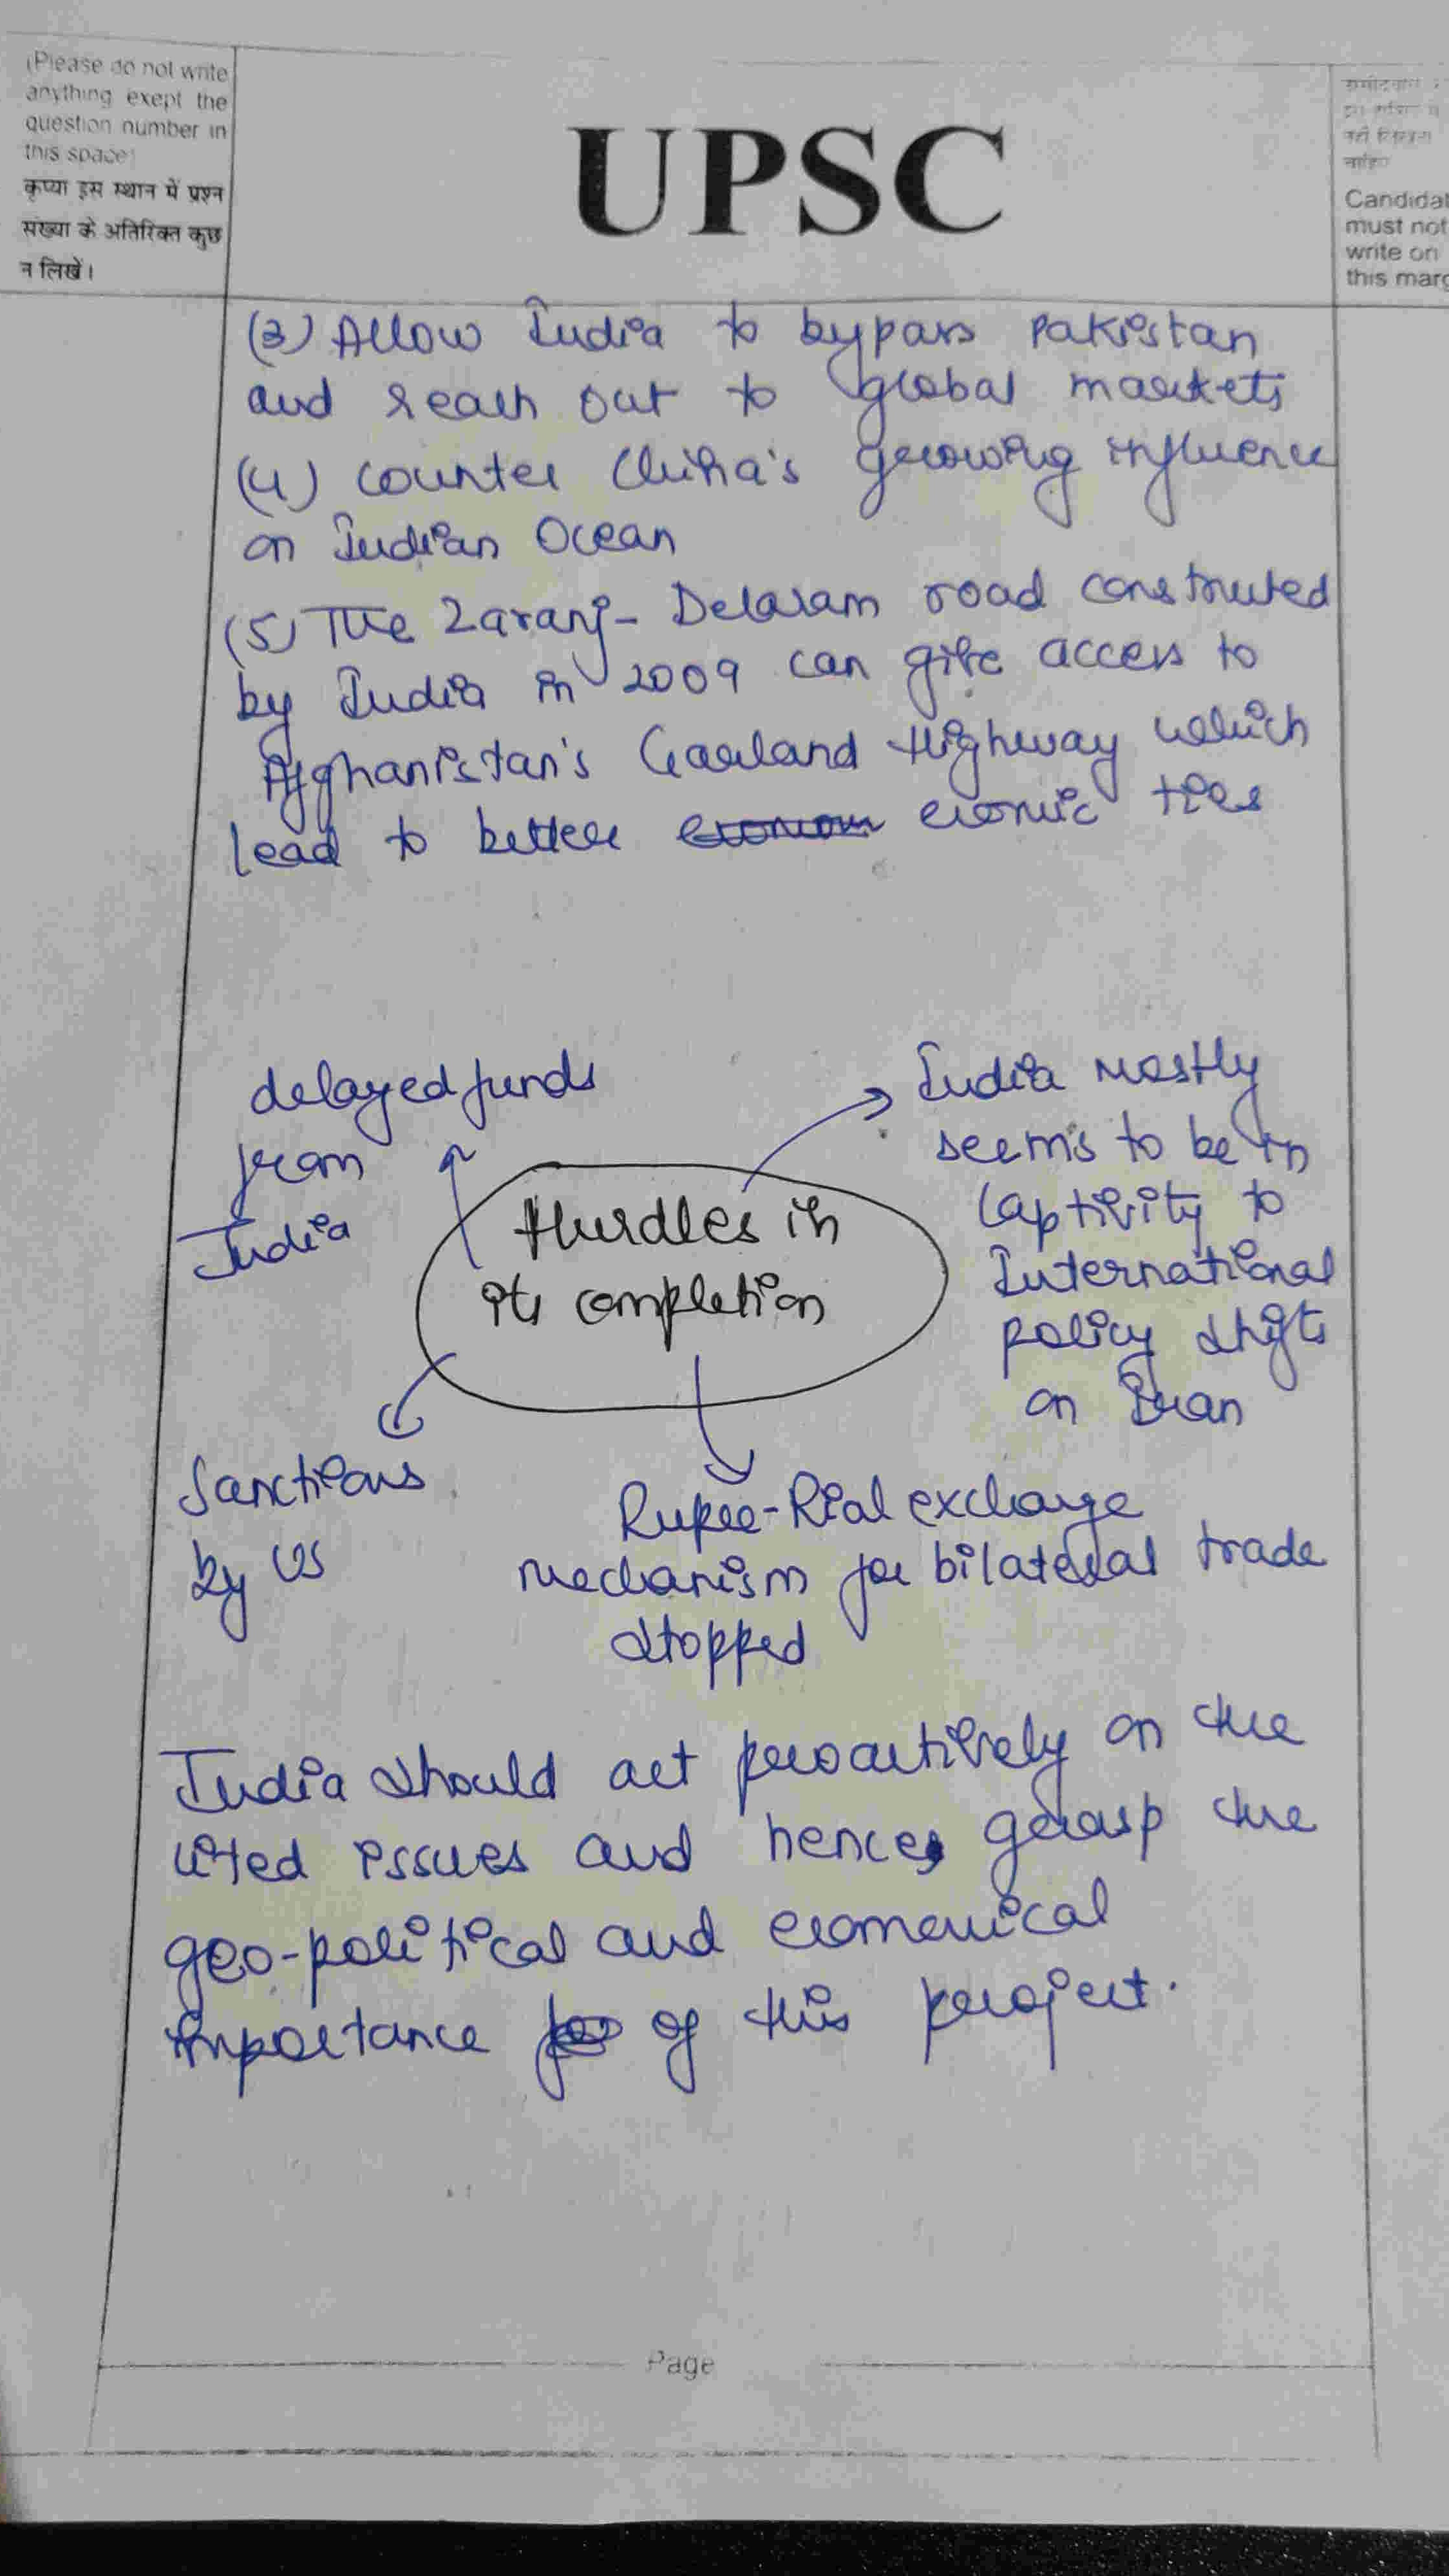 (Please do not write
anything exept the
question number in
this space)
कृप्या इस स्थान में प्रश्न
संख्या के अतिरिक्त कुछ
न लिखें।
UPSC
Candidat
must not
write on
this marg
(3) Allow India to bypass Pakistan
and reach out to global markets
(4) Counter China's growing influence
on Indian Ocean
(5) The Zaranj-Delaram road constructed
by India in 2009 can give access to
Afghanistan's Garland Highway which
lead to better ecomic ties
delayed funds
from
India
India mostly
seems to be in
captivity to
International
policy shifts
on Iran
Hurdles in
its completion
Sanctions
by US
Rupee-Rial exchange
mechanism for bilateral trade
stopped
India should act proactively on the
cited issues and hence, grasp the
geo-political and ecomonical
importance of this project.
Page